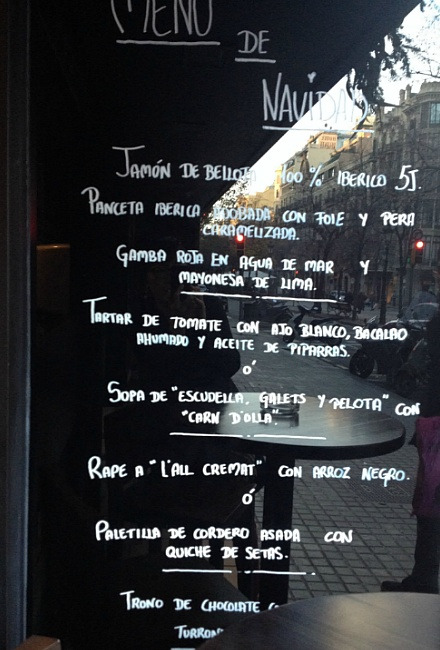 MENÚ
DE
NAVIDAD
JAMÓN DE BELLOTA 100% IBERICO 5J.
PANCETA IBERICA ADOBADA CON FOIE Y PERA
CARAMELIZADA.
GAMBA ROJA EN AGUA DE MAR Y
MAYONESA DE LIMA.
TARTAR DE TOMATE CON AJO BLANCO, BACALAO
AHUMADO Y ACEITE DE PIPARRAS.
O'
SOPA DE "ESCUDELLA, GALETS Y PELOTA" CON
"CARN D'OLLA".
RAPE A "L'ALL CREMAT" CON ARROZ NEGRO.
O'
PALETILLA DE CORDERO ASADA CON
QUICHE DE SETAS.
TRONO DE CHOCOLATE